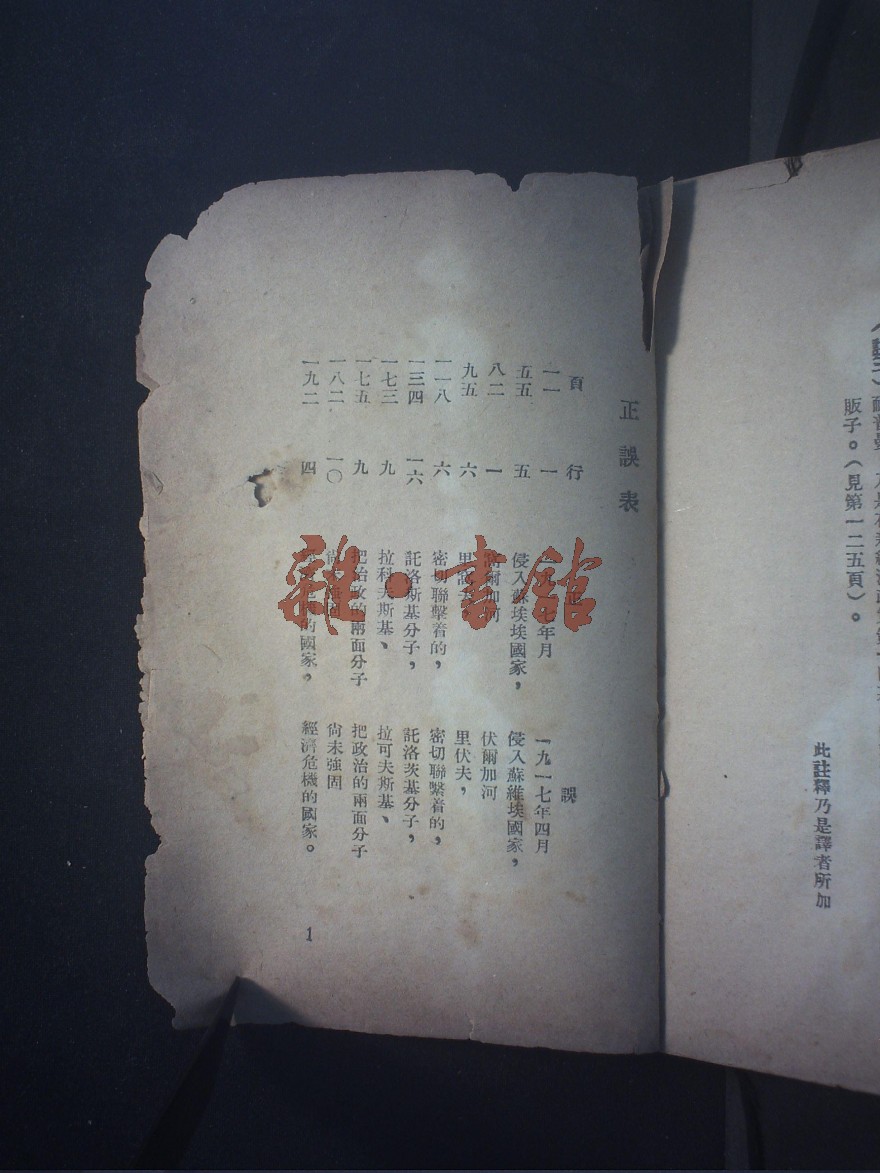 販子。（見第一二五頁）。
此註釋乃是譯者所加
正誤表
頁 行 正 誤
一一 一 七年月 一九一七年四月
五五 五 侵入蘇埃埃國家， 侵入蘇維埃國家，
八二 一 爾加河 伏爾加河
九五 六 里 里伏夫，
一一八 六 密切聯擊着的， 密切聯繫着的，
一三四 一六 託洛斯基分子， 託洛茨基分子，
一七三 九 拉科夫斯基、 拉可夫斯基、
一七五 九 把治政的兩面分子 把政治的兩面分子
一八二 一〇 尚未強固
一九二 四 的國家， 經濟危機的國家。
1
雜·書館